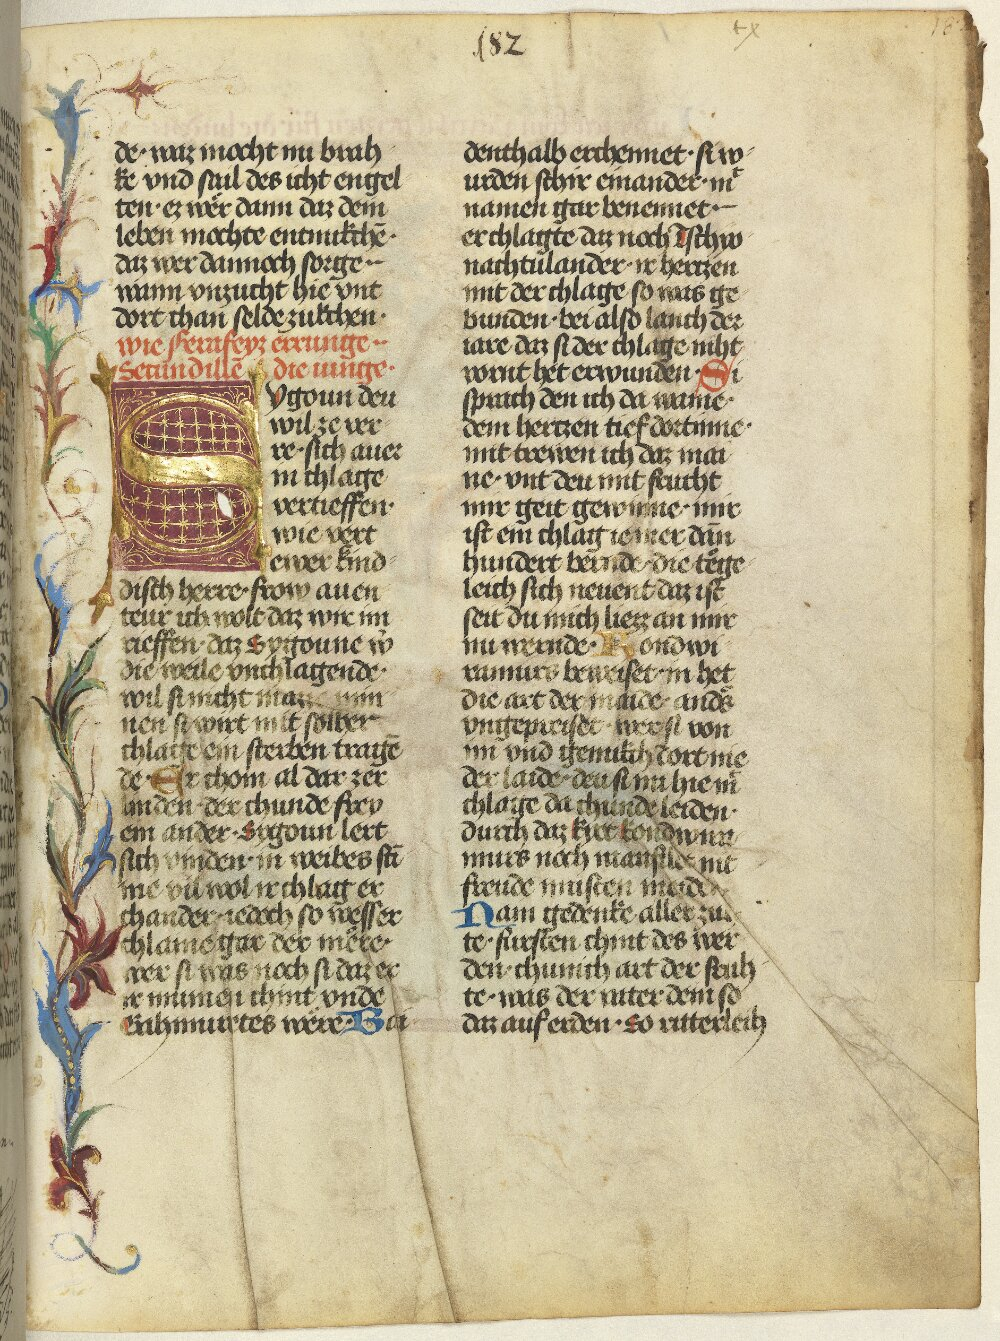 182
de · waz mocht nu brah
ke vnd saul des icht engel
ten · ez wër dann daz dem
leben mochte entnukchē ·
daz wer dannoch sorge ··
wann vnzucht hie vnt
dort chan selde zukchen ·
wie ferrafeyz errunge ··
Secundillē die iunge ·
SYgoun deu
wil ze ver
re · sich auer
in chlage
vertieffen ·
wie vert
ewer kind
disch herre · frow auen
teur ich wolt daz wir im
rieffen · daz Sygoune w̄
die weile vnchlagende ·
wil si nicht
nen si wirt mit solher
chlage ein sterben tragē
de · Er chom al dar zer
linden · der chunde frey
ein ander · Sygoun lert
sich vinden · in weibes stī
me vil wol ir chlag er
chander · iedoch so wesser
chlaine gar der mëre ·
wer si was noch si daz er
ir mumen chint vnde
Gahmurtes wëre · Bai
denthalb erchennet · si w
urden schir einander · mͤ
namen gar benennet ·–
er chlagte daz noch Tschio
nachtulander · ir hertzen
mit der chlage so was ge
bunden · bei also lanch der
iare daz si der chlage niht
wont het erwunden · Si
sprach den ich da maine ·
dem hertzen tief dortinne ·
mit trewen ich daz mai
ne · vnt deu mit feucht
mir geit gewinne · mir
ist ein chlag iemer dañ
hundert bernde · die tëge
leich sich neuent daz ist
seit du mich liezz an mir
nu wernde · Kondwi
ramurs beweiset · in het
die art der maide · anders
vngepreiset · wer si von
im vnd genukch dort nie
der laide · deu si nu hie mͤ
chlage da chunde leiden ·
durch daz Kyot kondwira
murs noch manfilot nit
freude musten meiden
Nam gedenke aller zuh
te · fursten chint des wer
den · chunich art der fruh
te · was der ritter dem so
daz auf erden · So ritterleih